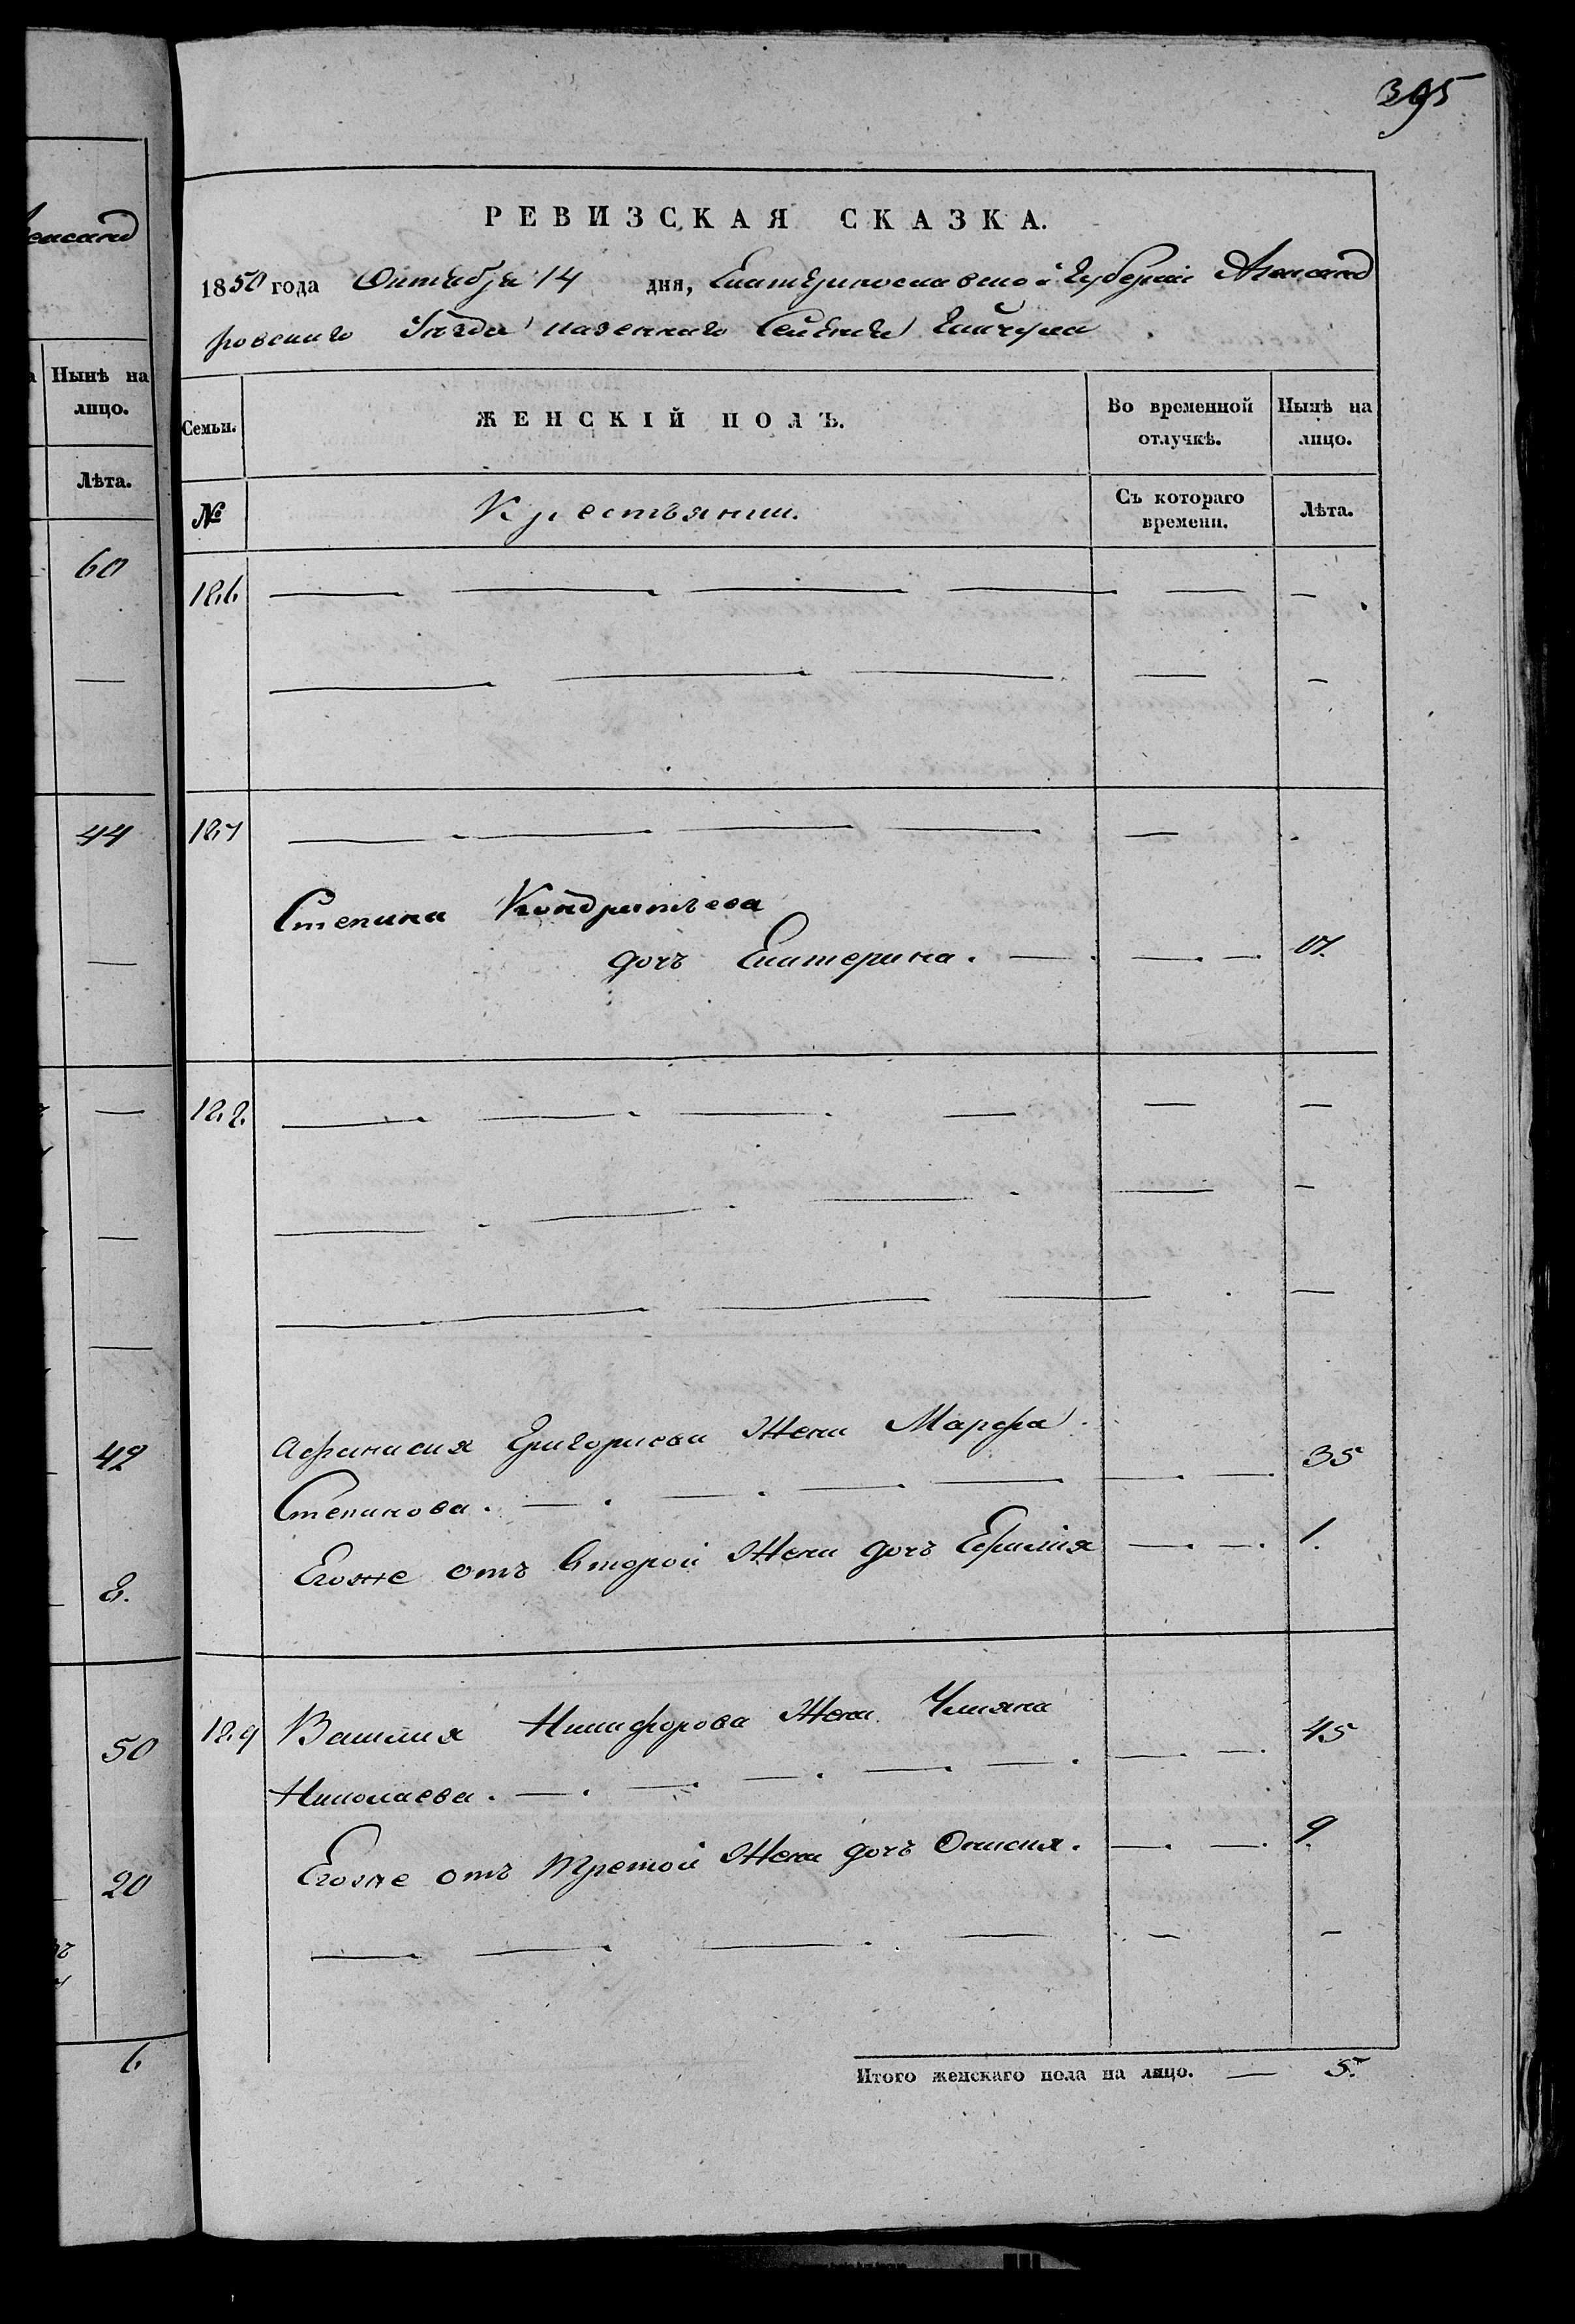 395
РЕВИЗСКАЯ СКАЗКА.
1850 года Октября 14 дня, Екатеринославской Губернии Александ
ровскаго Уѣзда казеннаго Селенія Гайчула
Семьи.
ЖЕНСКІЙ ПОЛЪ.
Во временной отлучкѣ.
Нынѣ на лицо.
№
Крестьянки.
Съ котораго времени.
Лѣта.
126
127
Степана Кондратьева
дочь Екатерина. 17.
128.
Афанасия Григорьева Жена Марфа
Степанова. 35
Егоже отъ второй Жены дочь Ефимія 1.
129 Василия Никифорова Жена Улияна
Николаева. 45
Егоже отъ третой Жены дочь Онисия. 9.
Итого женскаго пола на лицо. — 5.
ксанд
Нынѣ на
лицо.
Лѣта.
60
44
42
8.
50
20
6